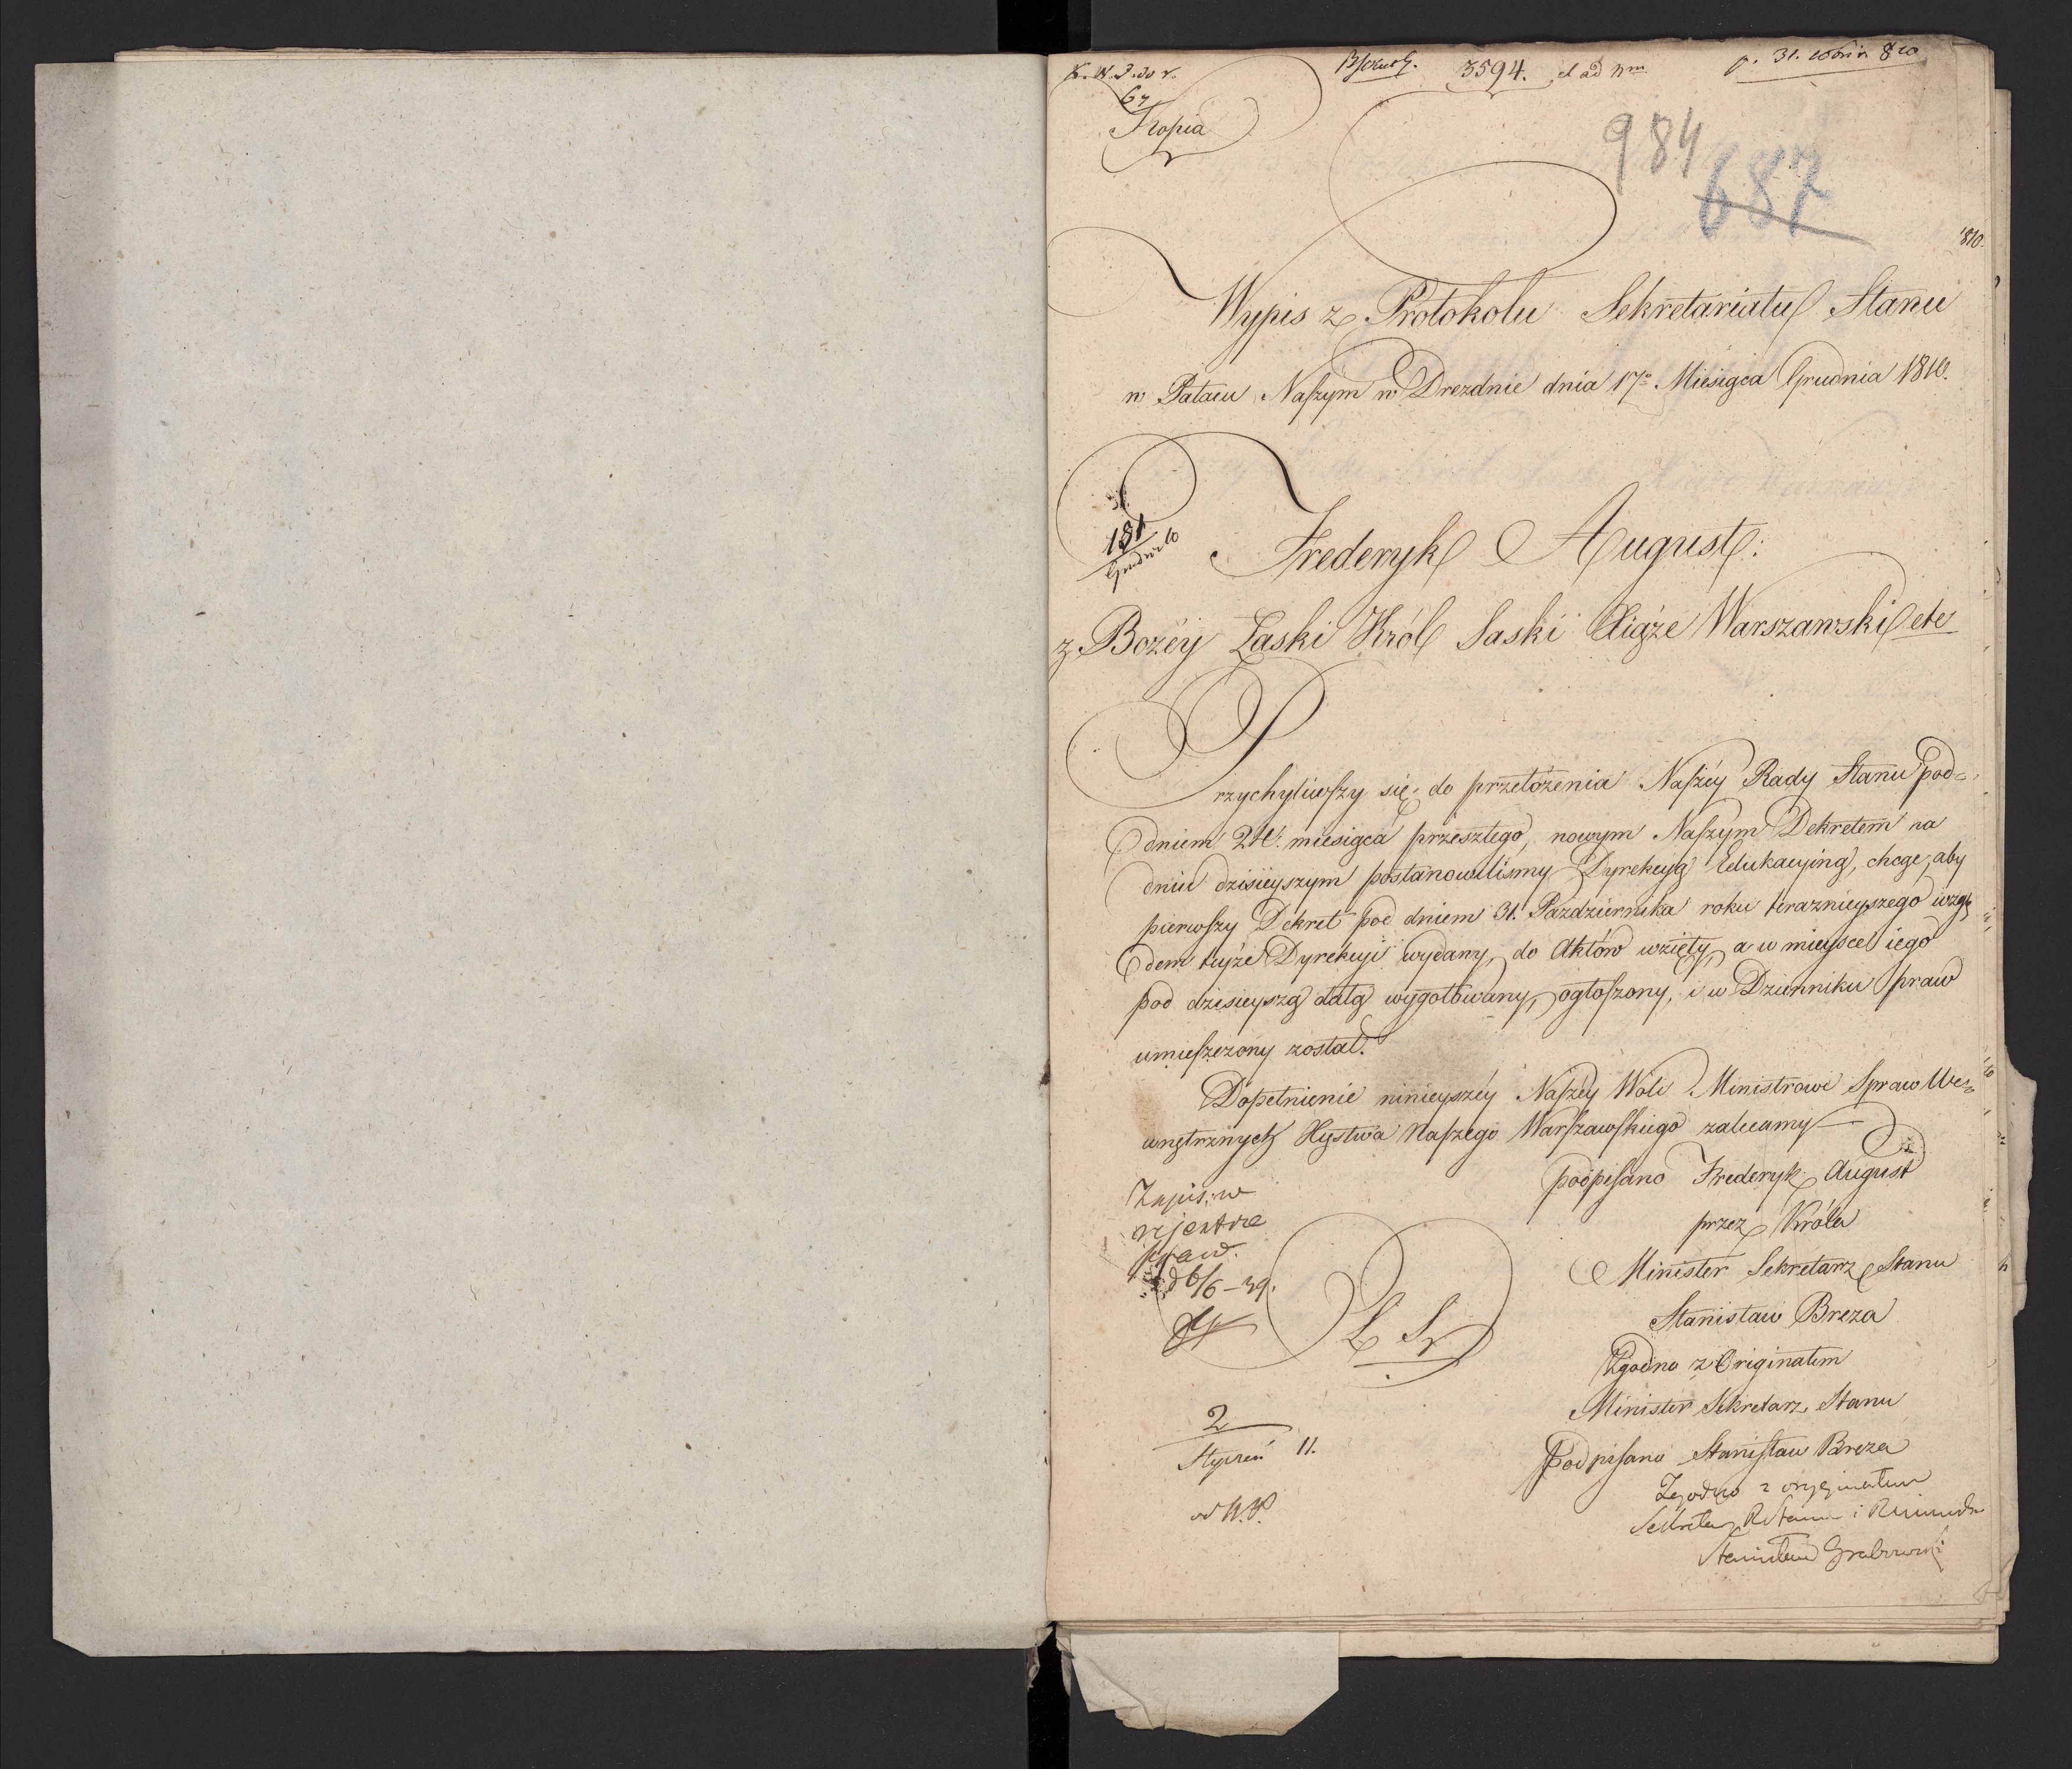 3594. et ad Nm
Kopia
984
687
810.
Wypis z Protokołu Sekretariatu Stanu
w Pałacu Naszym w Dreznie dnia 17º Miesiąca Grudnia 1810.
Frederyk August.
z Bożéy Łaski Król Saski Xiąże Warszawski etc
181
Grudnia 10
Przychyliwszy się do przełożenia Naszéy Rady Stanu pod=
dniem 24. miesiąca przeszłego, nowym Naszym Dekretem na
dniu dzisieyszym postanowiliśmy Dyrekcyą Edukacyiną, chcąc, aby
pierwszy Dekret pod dniem 31. Pazdziernika roku teraznieyszego wzglę
dem teyże Dyrekcyi wydany, do Aktów wzięty, a w mieysce iego
pod dzisieyszą datą wygotowany, ogłoszony, i w Dzienniku praw
umieszczony został.
Dopełnienie ninieyszéy Naszéy Woli Ministrowi Spraw We=
wnętrznych Xięstwa Naszego Warszawskiego zalecamy
podpisano Frederyk August
przez Króla
Minister Sekretarz Stanu
Stanisław Breza
Zgodno z Originałem
Minister Sekretarz Stanu
Podpisano Stanisław Breza
Zgodno z oryginałem
Sekretarz R Stanu i R Ministr
Stanisław Grabowski
Zapis. w
rejestrze
spraw.
d 6/6 – 39.
L S
2
Styczeń 11.
od N. P.